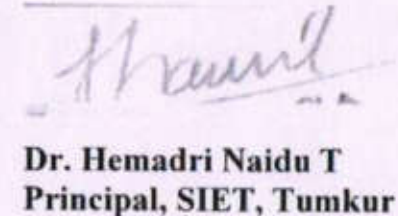 Dr. Hemadri Naidu T
Principal, SIET, Tumkur